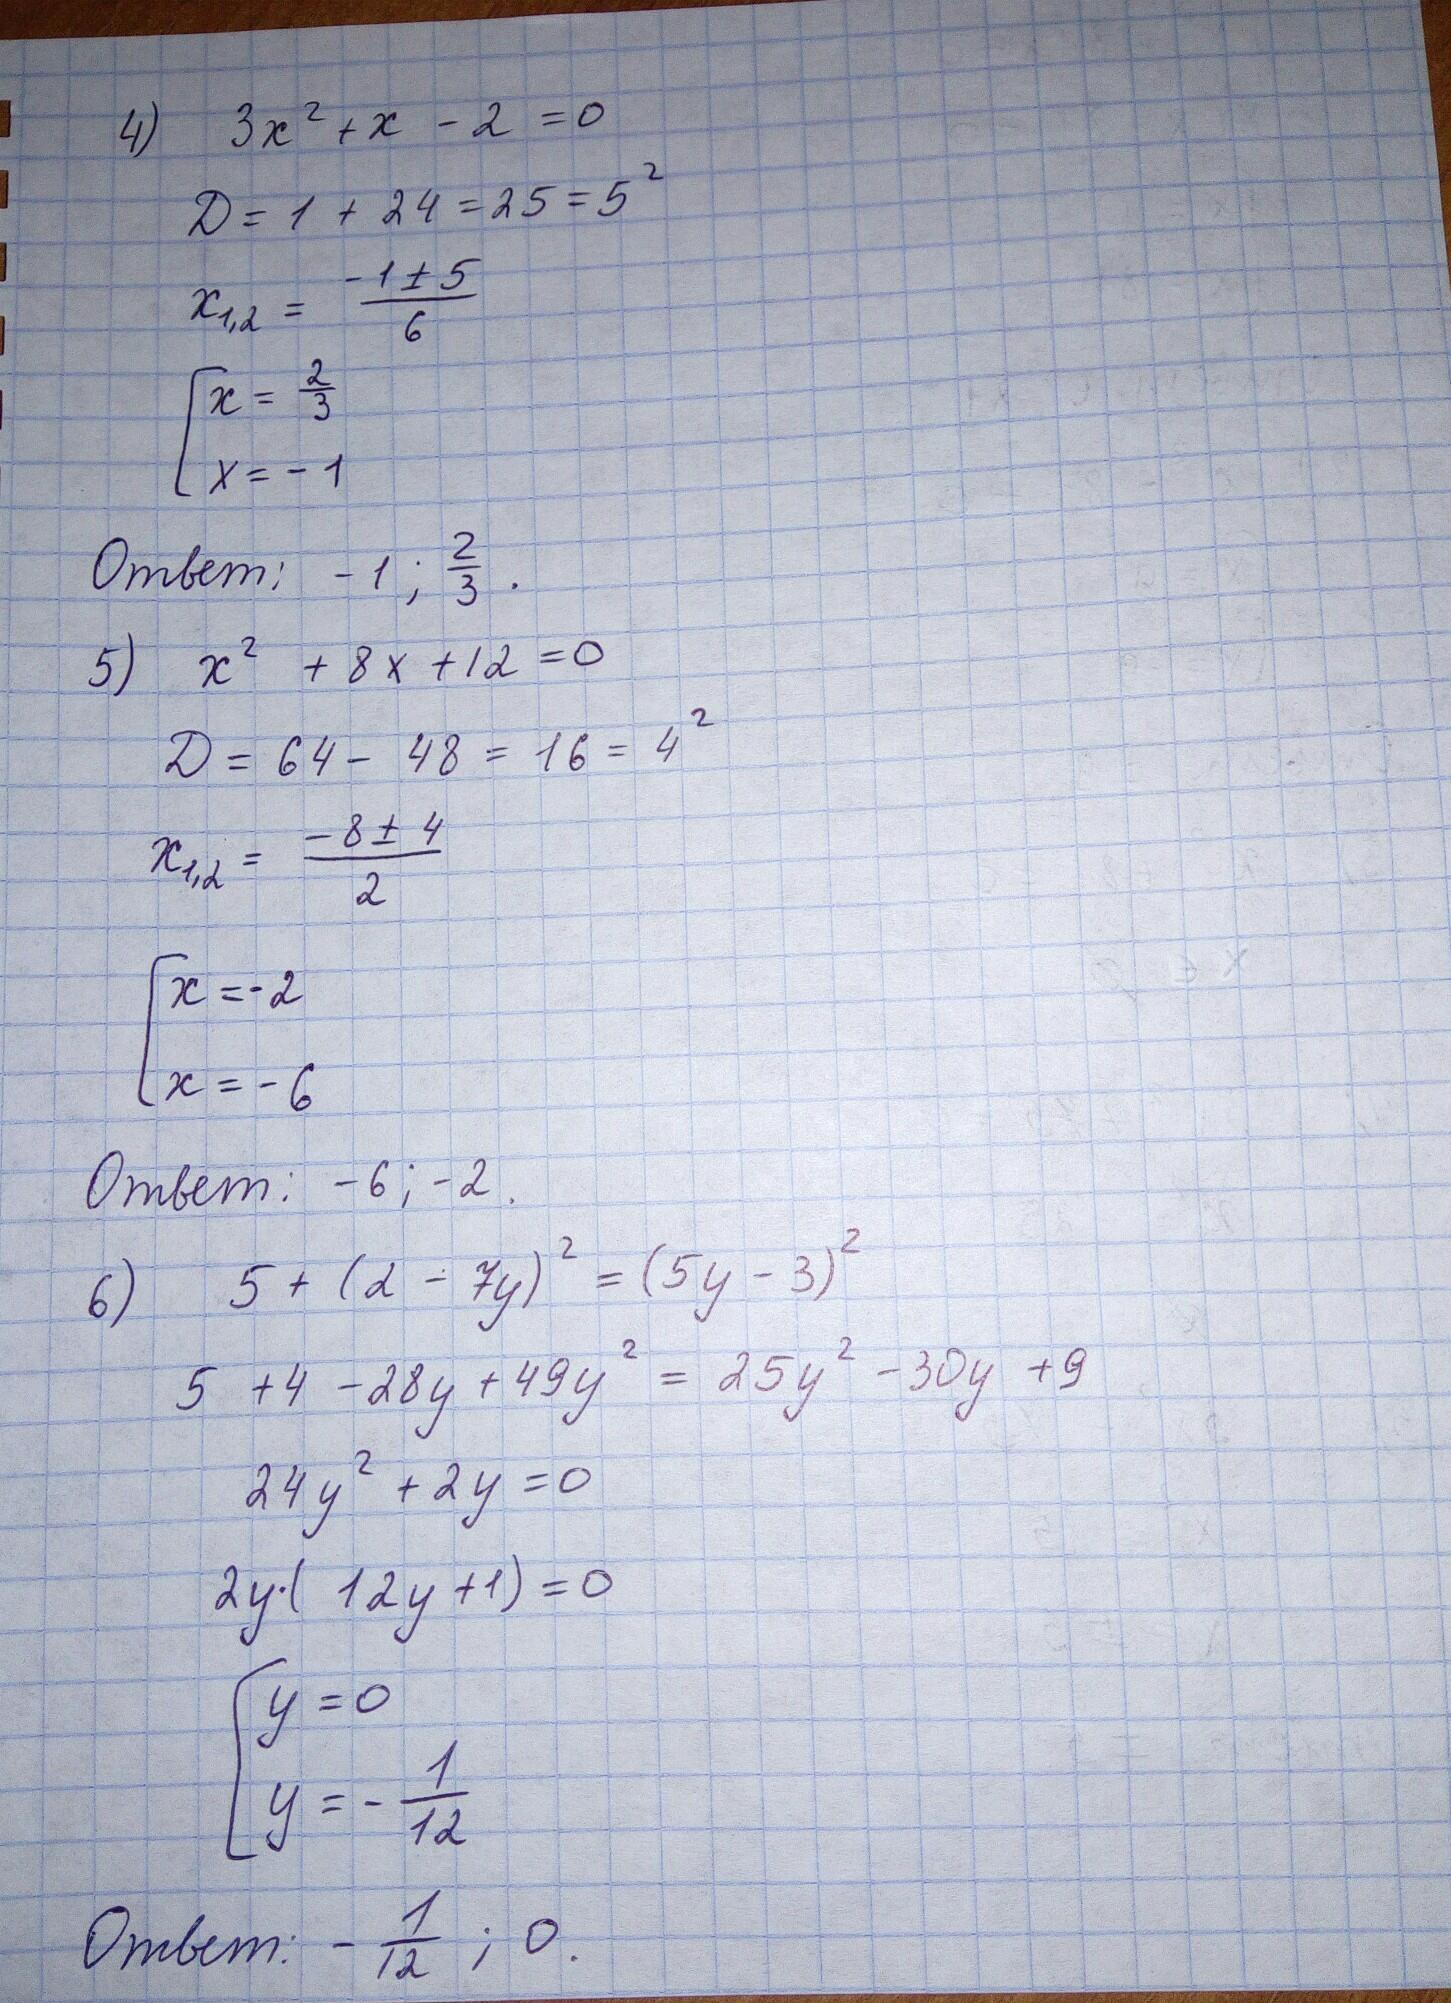 4) 3x² + x - 2 = 0
D = 1 + 24 = 25 = 5²
x₁,₂ = (-1 ± 5)/6
[ x = 2/3
x = -1
Ответ: -1; 2/3.
5) x² + 8x + 12 = 0
D = 64 - 48 = 16 = 4²
x₁,₂ = (-8 ± 4)/2
[ x = -2
x = -6
Ответ: -6; -2.
6) 5 + (2 - 7y)² = (5y - 3)²
5 + 4 - 28y + 49y² = 25y² - 30y + 9
24y² + 2y = 0
2y·(12y + 1) = 0
[ y = 0
y = - 1/12
Ответ: - 1/12; 0.